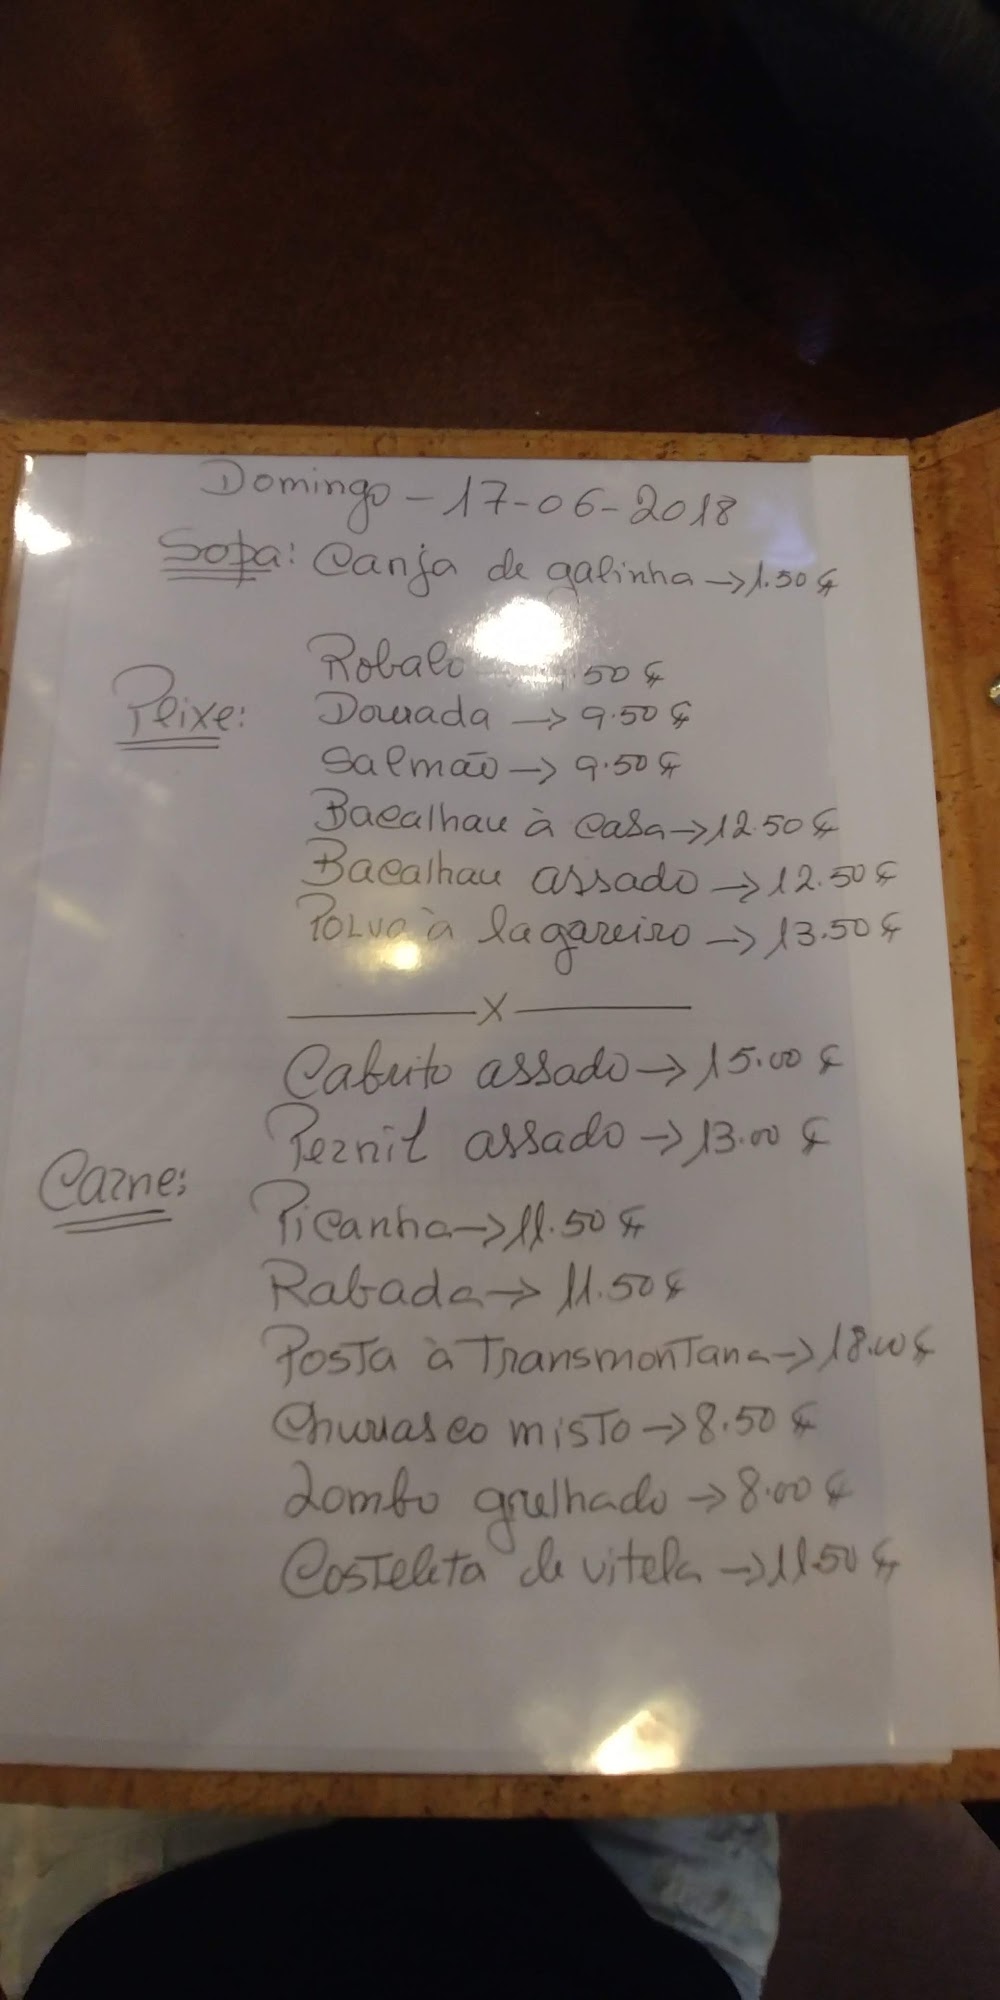 Domingo - 17-06-2018
Sopa: Canja de galinha → 1.50 €
Robalo .50 €
Peixe:
Dourada → 9.50 €
Salmão → 9.50 €
Bacalhau à casa → 12.50 €
Bacalhau assado → 12.50 €
Polvo à lagareiro → 13.50 €
X
Cabrito assado → 15.00 €
Pernil assado → 13.00 €
Carne:
Picanha → 11.50 €
Rabada → 11.50 €
Posta à Transmontana → 18.00 €
Churrasco misto → 8.50 €
Lombo grelhado → 8.00 €
Costeleta de vitela → 11.50 €